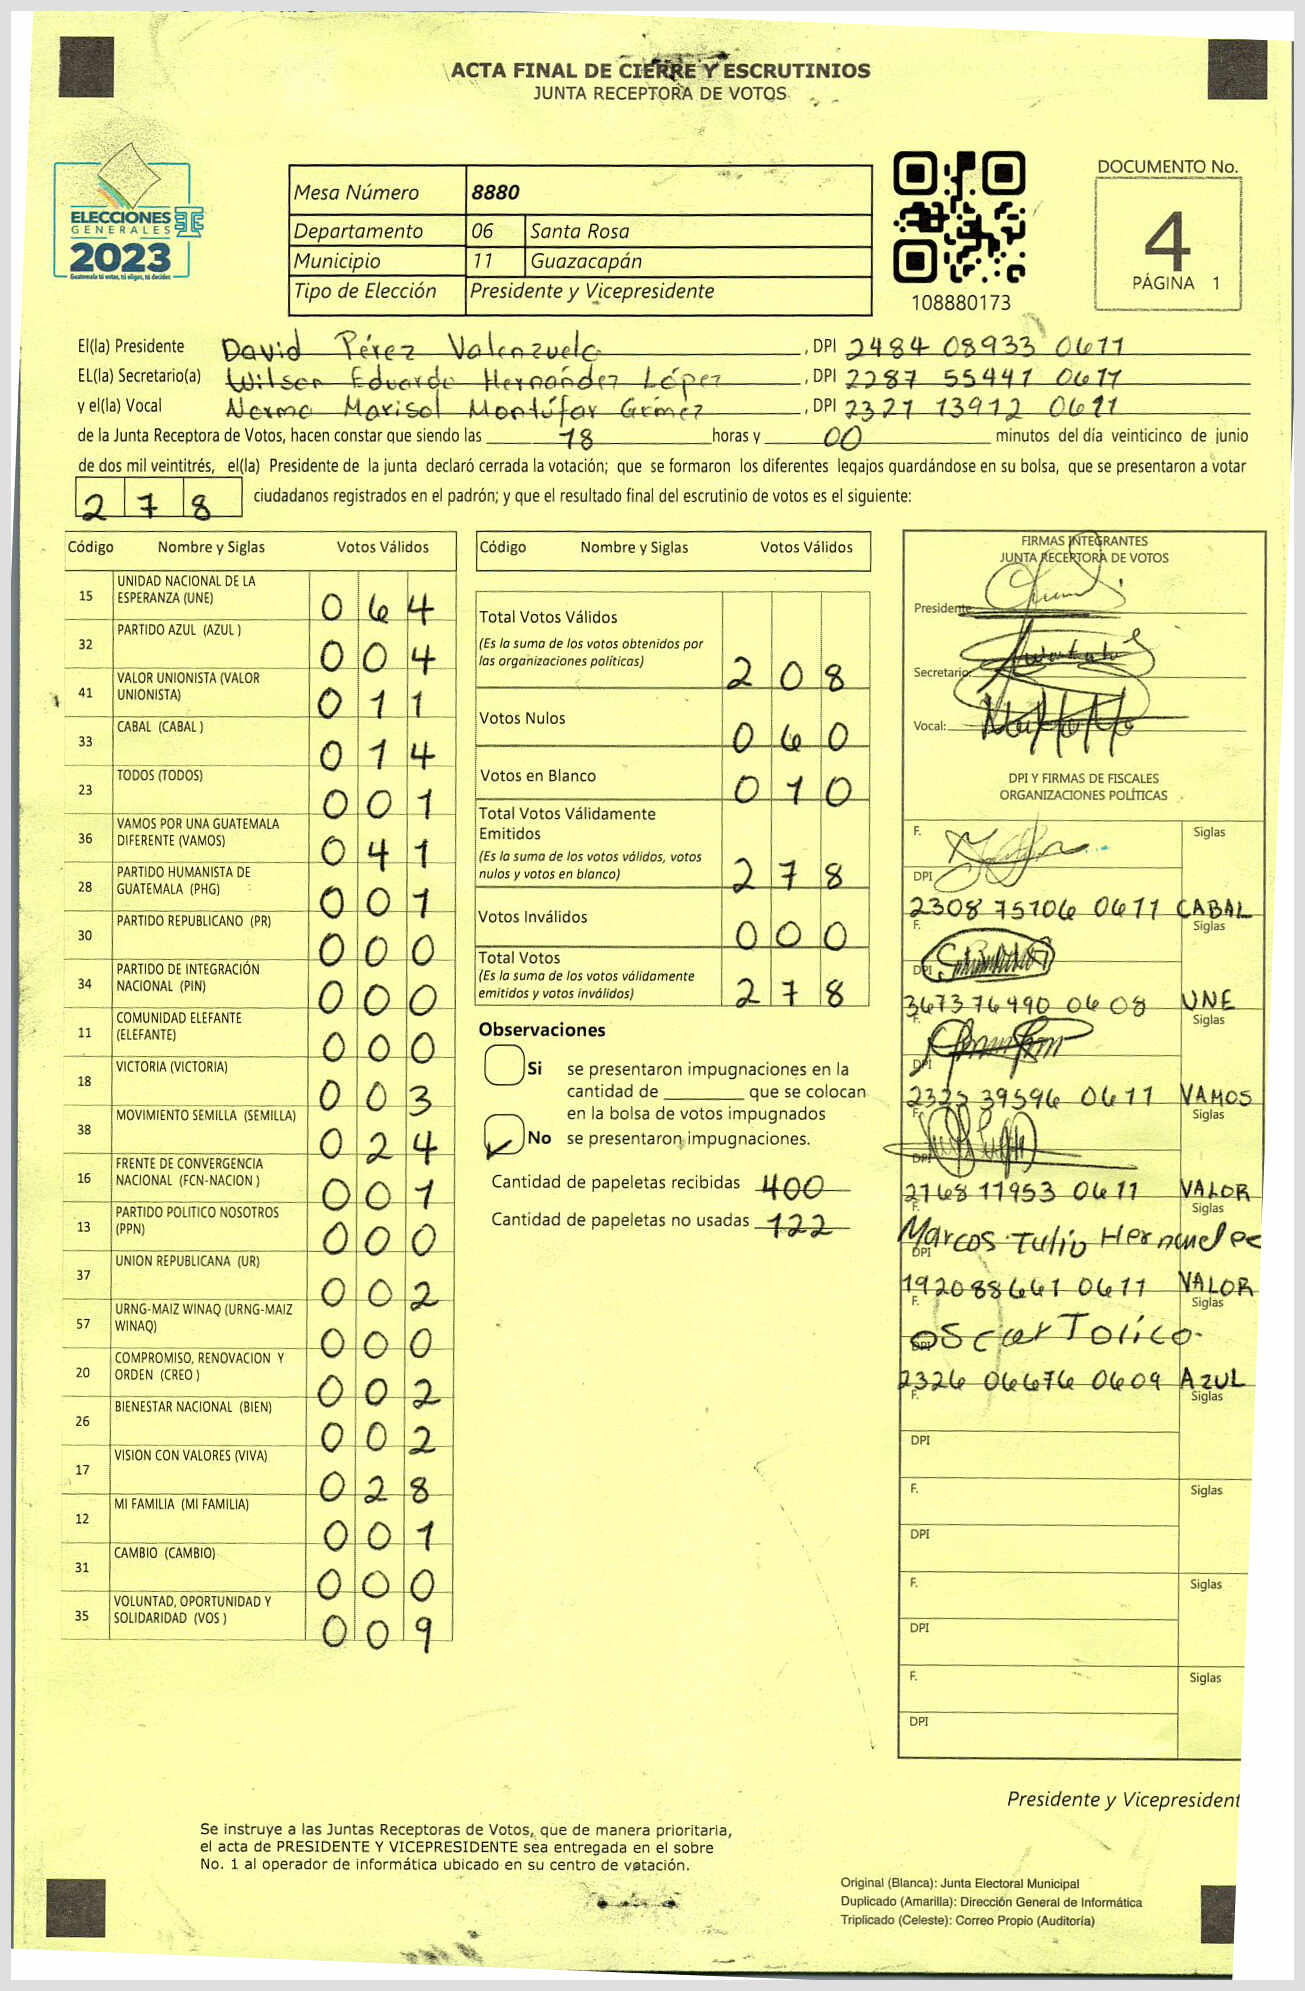 ACTA FINAL DE CIERRE Y ESCRUTINIOS
JUNTA RECEPTORA DE VOTOS
ELECCIONES
GENERALES
2023
Guatemala tú votas, tú eliges, tú decides
Mesa Número 8880
Departamento 06 Santa Rosa
Municipio 11 Guazacapán
Tipo de Elección Presidente y Vicepresidente
108880173
DOCUMENTO No.
4
PÁGINA 1
El(la) Presidente David Pérez Valenzuela , DPI 2484 08933 0611
EL(la) Secretario(a) Wilson Eduardo Hernández López , DPI 2287 55441 0611
y el(la) Vocal Norma Marisol Montúfar Gómez , DPI 2321 13912 0611
de la Junta Receptora de Votos, hacen constar que siendo las 18 horas y 00 minutos del día veinticinco de junio
de dos mil veintitrés, el(la) Presidente de la junta declaró cerrada la votación; que se formaron los diferentes legajos guardándose en su bolsa, que se presentaron a votar
2 7 8 ciudadanos registrados en el padrón; y que el resultado final del escrutinio de votos es el siguiente:
Código Nombre y Siglas Votos Válidos
15 UNIDAD NACIONAL DE LA ESPERANZA (UNE) 0 6 4
32 PARTIDO AZUL (AZUL ) 0 0 4
41 VALOR UNIONISTA (VALOR UNIONISTA) 0 1 1
33 CABAL (CABAL ) 0 1 4
23 TODOS (TODOS) 0 0 1
36 VAMOS POR UNA GUATEMALA DIFERENTE (VAMOS) 0 4 1
28 PARTIDO HUMANISTA DE GUATEMALA (PHG) 0 0 1
30 PARTIDO REPUBLICANO (PR) 0 0 0
34 PARTIDO DE INTEGRACIÓN NACIONAL (PIN) 0 0 0
11 COMUNIDAD ELEFANTE (ELEFANTE) 0 0 0
18 VICTORIA (VICTORIA) 0 0 3
38 MOVIMIENTO SEMILLA (SEMILLA) 0 2 4
16 FRENTE DE CONVERGENCIA NACIONAL (FCN-NACION ) 0 0 1
13 PARTIDO POLITICO NOSOTROS (PPN) 0 0 0
37 UNION REPUBLICANA (UR) 0 0 2
57 URNG-MAIZ WINAQ (URNG-MAIZ WINAQ) 0 0 0
20 COMPROMISO, RENOVACION Y ORDEN (CREO ) 0 0 2
26 BIENESTAR NACIONAL (BIEN) 0 0 2
17 VISION CON VALORES (VIVA) 0 2 8
12 MI FAMILIA (MI FAMILIA) 0 0 1
31 CAMBIO (CAMBIO) 0 0 0
35 VOLUNTAD, OPORTUNIDAD Y SOLIDARIDAD (VOS ) 0 0 9
Código Nombre y Siglas Votos Válidos
Total Votos Válidos
(Es la suma de los votos obtenidos por
las organizaciones políticas) 2 0 8
Votos Nulos 0 6 0
Votos en Blanco 0 1 0
Total Votos Válidamente
Emitidos
(Es la suma de los votos válidos, votos
nulos y votos en blanco) 2 7 8
Votos Inválidos 0 0 0
Total Votos
(Es la suma de los votos válidamente
emitidos y votos inválidos) 2 7 8
Observaciones
Si se presentaron impugnaciones en la
cantidad de ________ que se colocan
en la bolsa de votos impugnados
No se presentaron impugnaciones.
Cantidad de papeletas recibidas 400
Cantidad de papeletas no usadas 122
FIRMAS INTEGRANTES
JUNTA RECEPTORA DE VOTOS
Presidente:
Secretario:
Vocal:
DPI Y FIRMAS DE FISCALES
ORGANIZACIONES POLÍTICAS
F. Siglas
DPI
2308 75106 0611 CABAL
F. Siglas
DPI
3673 76490 0608 UNE
F. Siglas
DPI
2325 39596 0611 VAMOS
F. Siglas
DPI
2768 11953 0611 VALOR
F. Siglas
Marcos Tulio
DPI
1920 88661 0611 VALOR
F. Siglas
Oscar Torico
DPI
2326 06676 0609 AZUL
F. Siglas
DPI
F. Siglas
DPI
F. Siglas
DPI
F. Siglas
DPI
Presidente y Vicepresident
Se instruye a las Juntas Receptoras de Votos, que de manera prioritaria,
el acta de PRESIDENTE Y VICEPRESIDENTE sea entregada en el sobre
No. 1 al operador de informática ubicado en su centro de votación.
Original (Blanca): Junta Electoral Municipal
Duplicado (Amarilla): Dirección General de Informática
Triplicado (Celeste): Correo Propio (Auditoría)